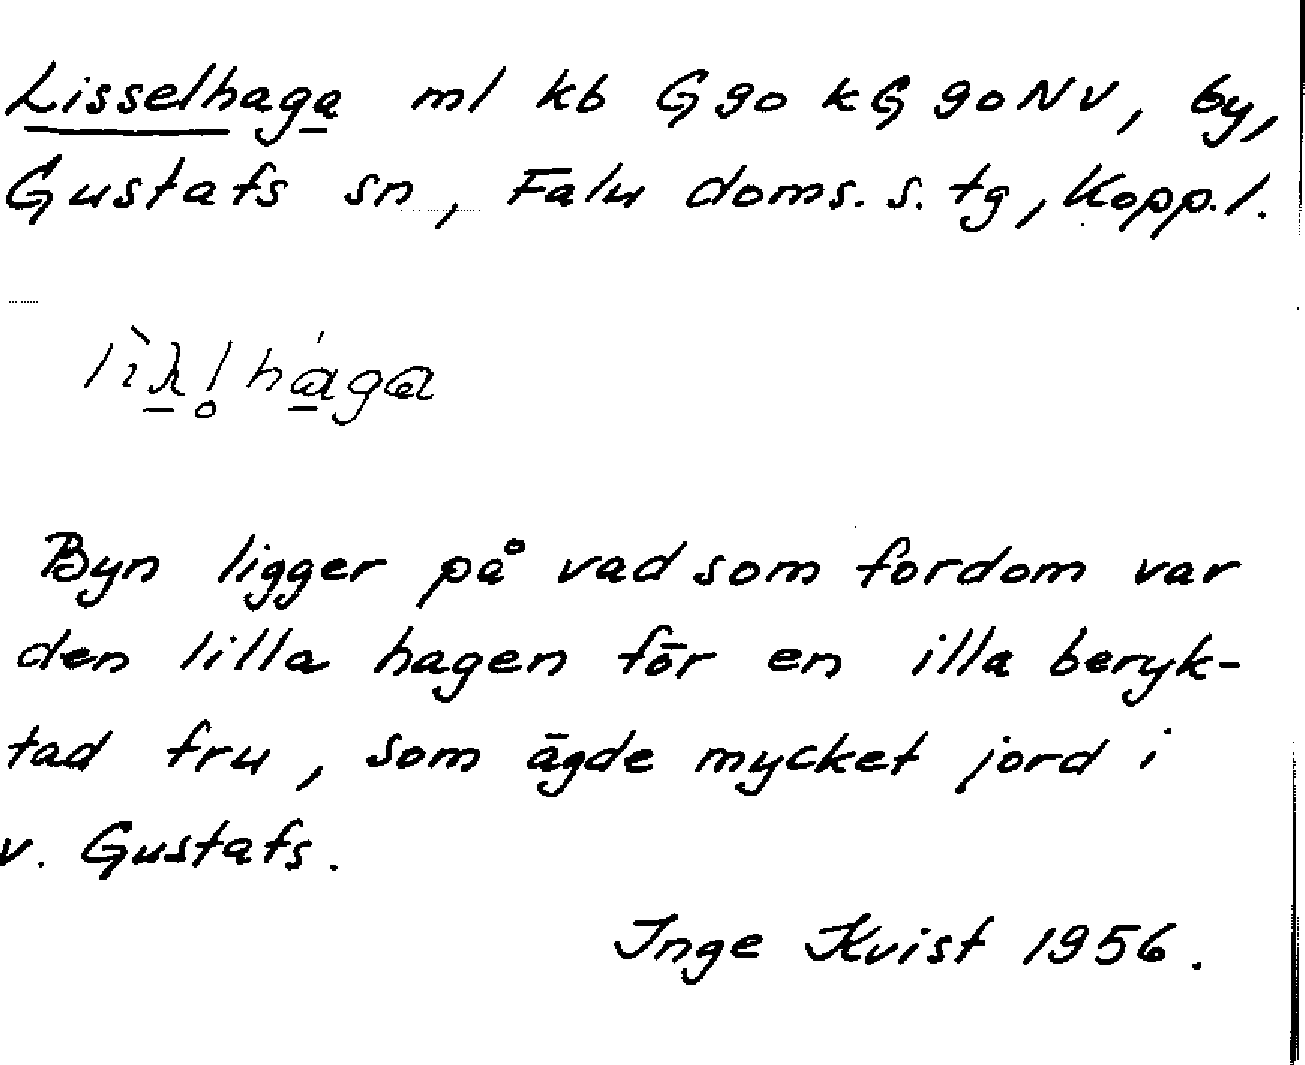 Lisselhaga ml kb G 90 kG 90 NV, by,
Gustafs sn, Falu doms. s. tg, Kopp. l.
Byn ligger på vad som fordom var
den lilla hagen för en illa beryk-
tad fru, som ägde mycket jord i
v. Gustafs.
Inge Kvist 1956.